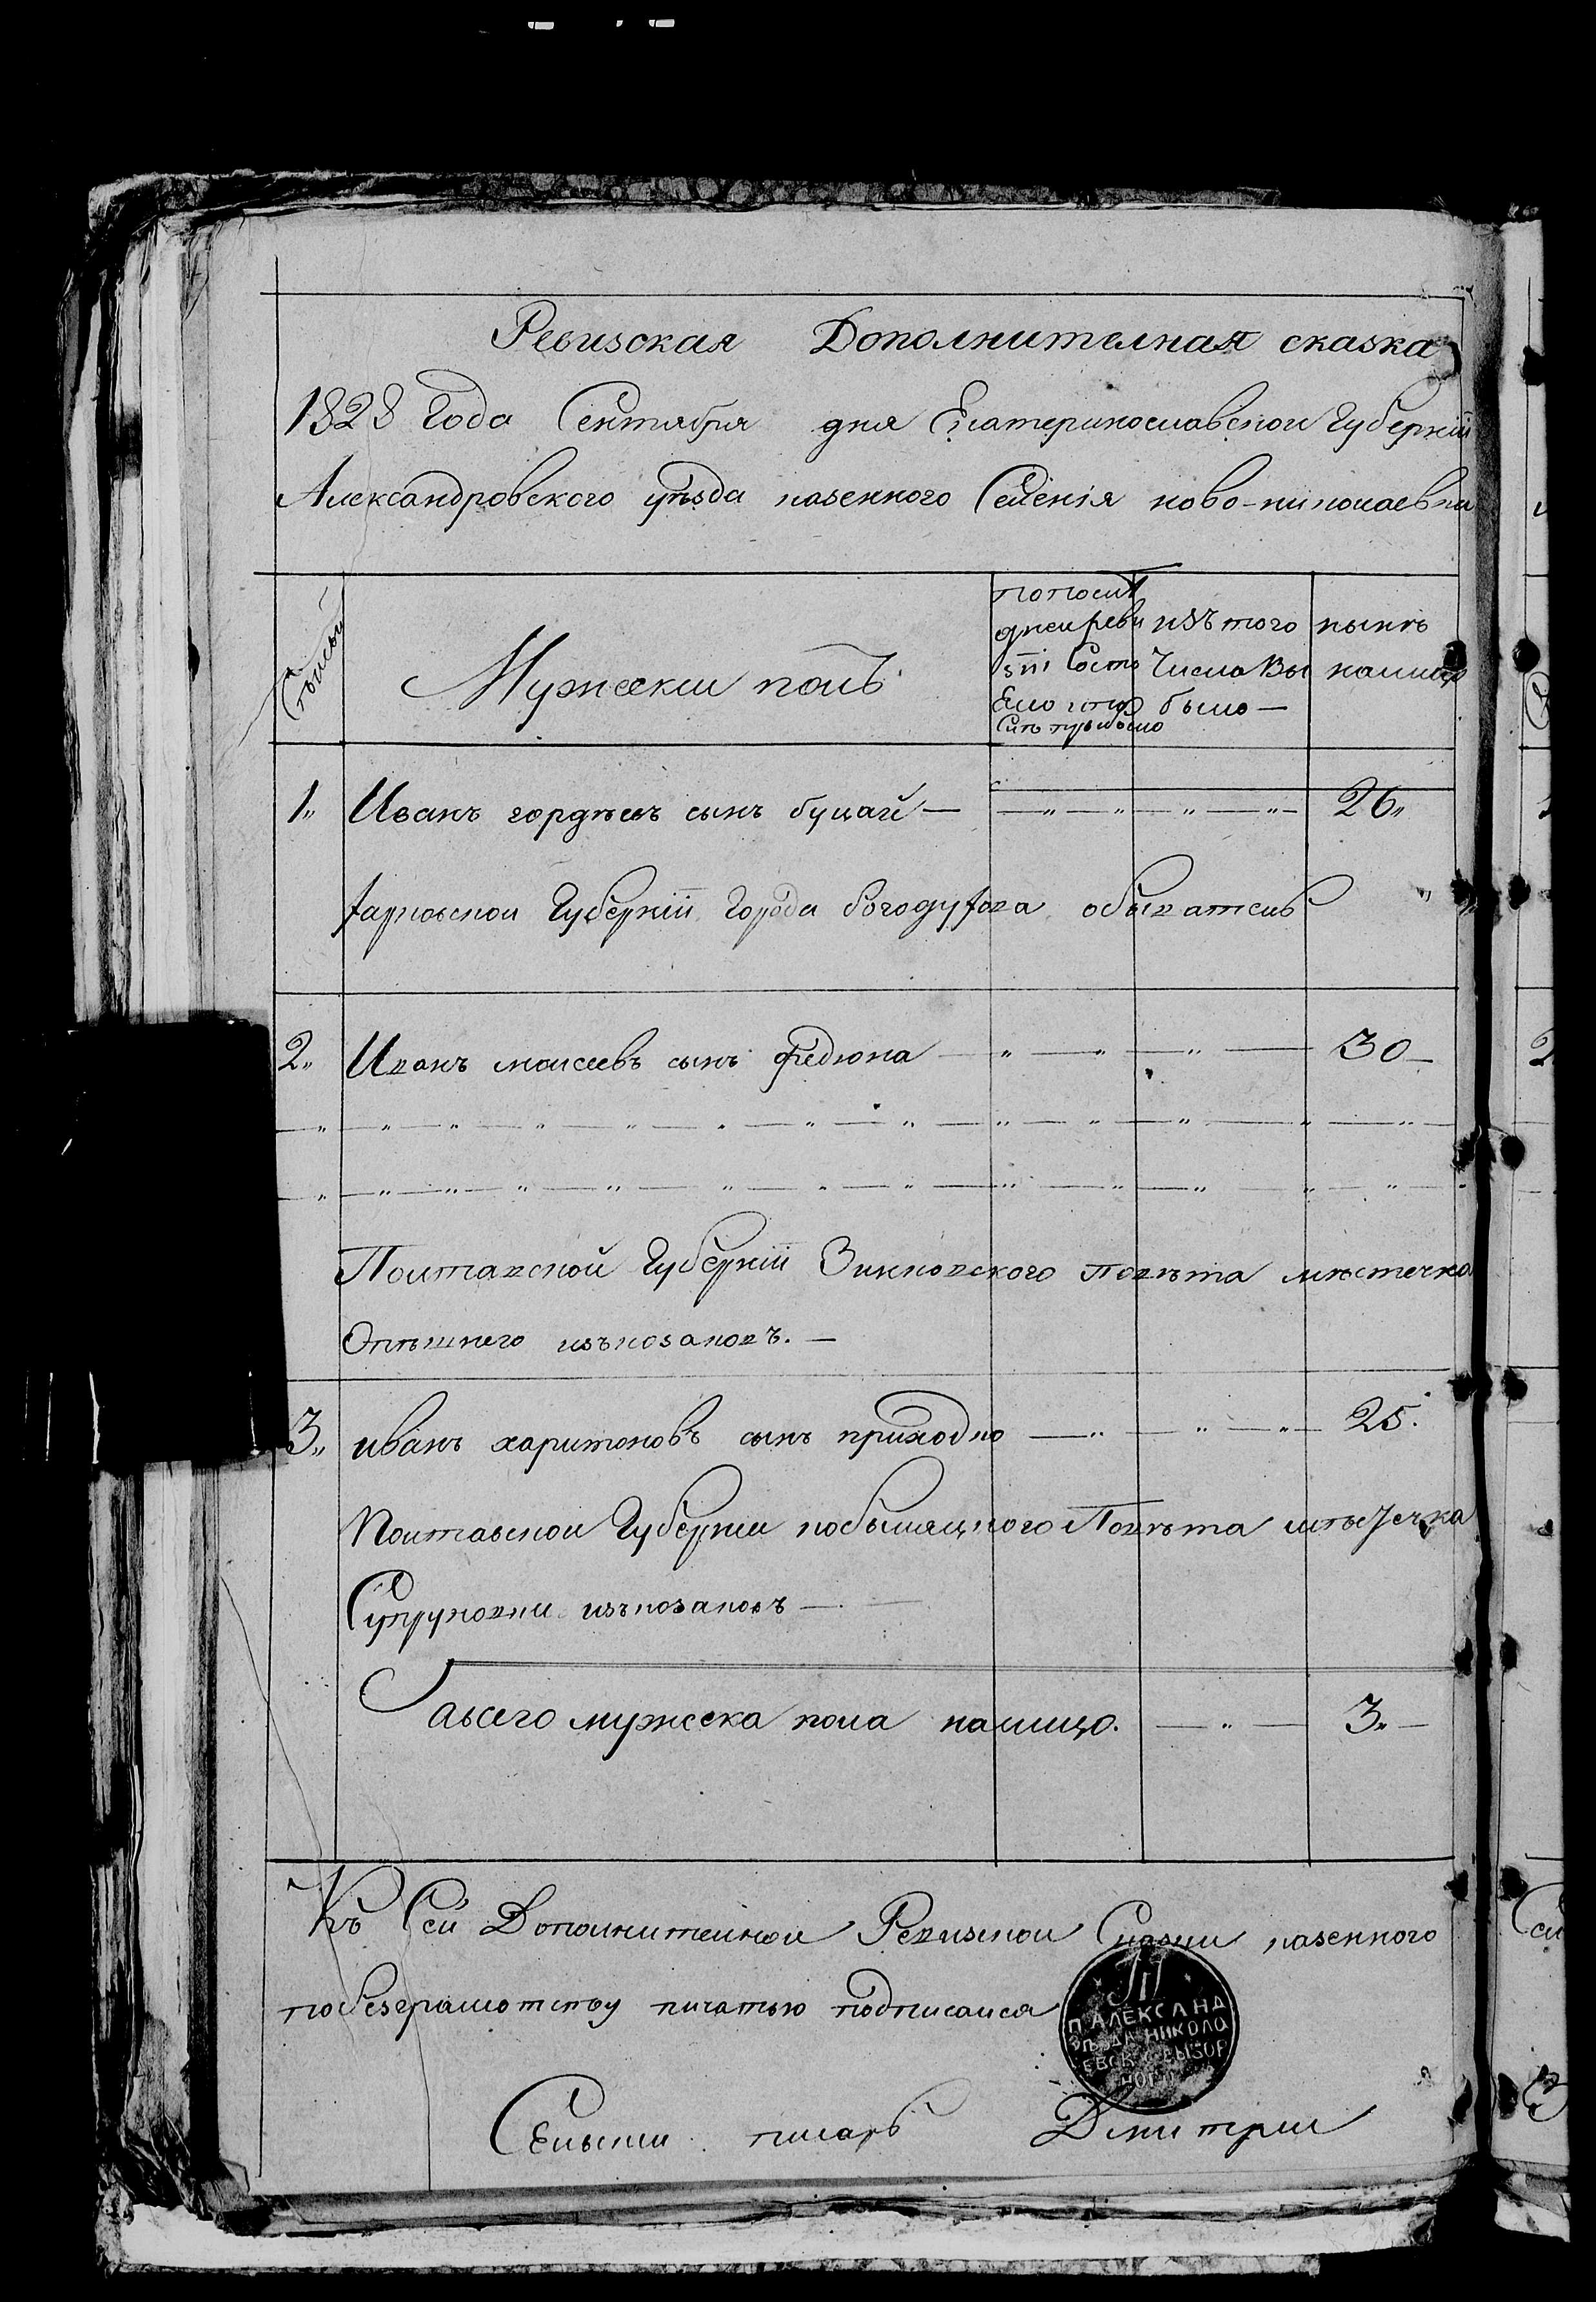 Ревизская Дополнителная сказка
1828 Года Сентября дня Екатеринославской Губерніи
Александровского уѣзда казенного Селенія ново-николаевки
Мужески полъ
изъ того
числа вы
было —
нынѣ
налицо
1„ Иванъ гордѣевъ сынъ буцай — „ — „ — „ — „ — 26„
харковской Губерніи Города богодухова обыватель
2„ Иванъ моисеевъ сынъ федюка — „ — „ — „ — 30 —
Полтавской Губерніи Зинковского Повѣта мѣстечка
Опѣшнего изъкозаковъ. —
3„ иванъ харитоновъ сынъ приходко — „ — „ — „ — 25.
Полтавской Губернии кобыляцкого Повѣта мѣстечка
Сутруновки изъкозаковъ —
всего мужеска пола налицо. — „ — 3„ —
Къ Сей Дополнителной Ревизкой Сказки казенного
побезграмотству печатью подписался
П АЛЕКСАНД
УѢЗДА НИКОЛА
ЕВСК ВЫБОР
НОГО
Селкии писарь Дмитрии